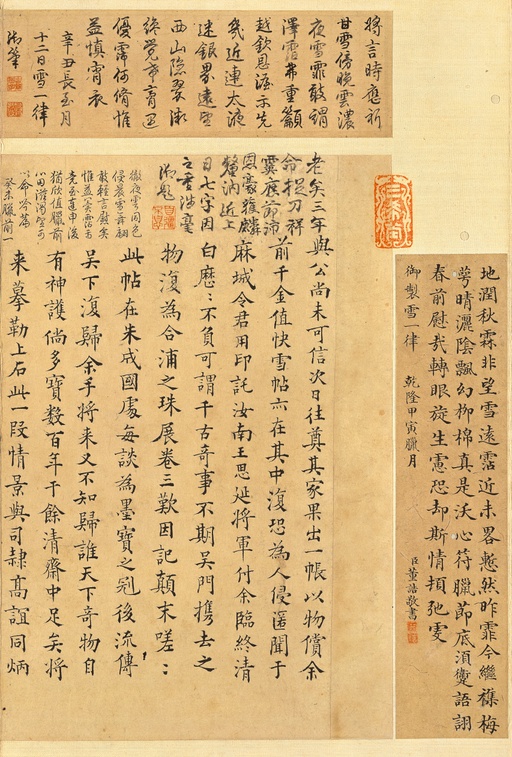 地潤秋霖非望雪遠霑近未畧愁然昨霏今繼襍梅
萼晴灑陰飄幻柳棉真是沃心符臘節底須蹙語詡
春前慰哉轉眼旋生慮恐却斯情頖弛雯
御製雪一律 乾隆甲寅臘月
臣董誥敬書
將言時應祈
甘雪傍晚雲濃
夜雪霏敢謂
澤霑弗重籲
越欽恩渥示先
幾近連太液
迷銀界遠望
西山隐翠微
終覺希膏正
優霈何脩惟
益慎宵衣
辛丑長至月
十二日雪一律
御筆
老矣三年
命捉刀祥
霙展節沛
恩膏獲麟
近上
日七字因
御題
與公尚未可信次日往奠其家果出一帳以物償余
前千金值快雪帖亦在其中復恐為人侵匿聞于
麻城令君用印託汝南王思延將軍付余臨終清
白歷:不負可謂千古奇事不期吳門攜去之
物復為合浦之珠展卷三歎因記顛末嗟:
徹夜雲同色
侵晨雪舞翻
敢輕言慰矣
惟益冀霑焉
猶欣值臘前
癸未臘前一
此帖在朱成國處每談為墨寶之冠後流傳
吳下復歸余手將来又不知歸誰天下奇物自
有神護倘多寶數百年于餘清齋中足矣將
来摹勒上石此一段情景與可隷髙誼同炳